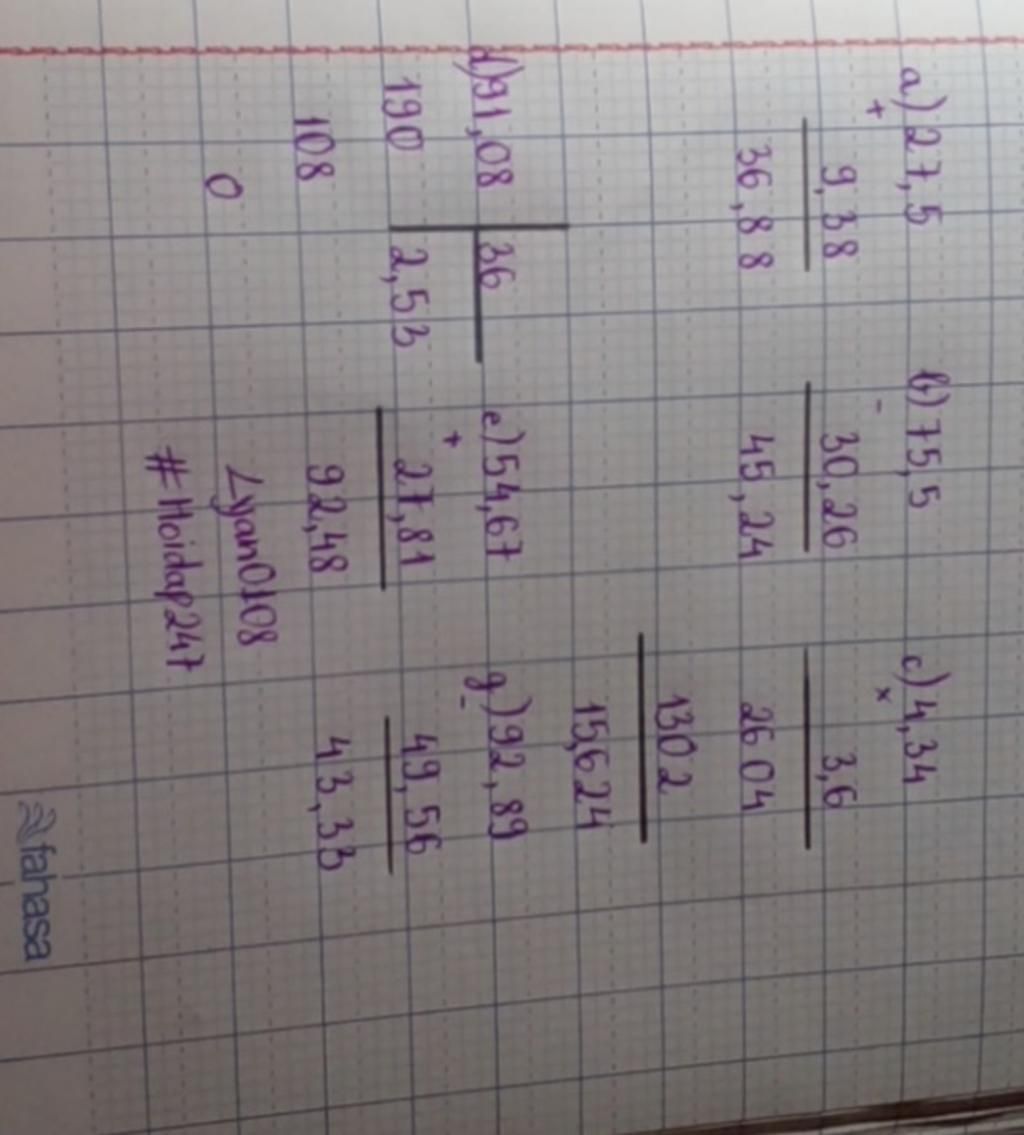 a) 27,5
+
9,38
36,88
b) 75,5
-
30,26
45,24
c) 4,34
×
3,6
2604
1302
15,624
d) 91,08 36
190 2,53
108
0
e) 54,67
+
27,81
92,48
g) 92,89
-
49,56
43,33
Lyan0108
#Hoidap247
fahasa